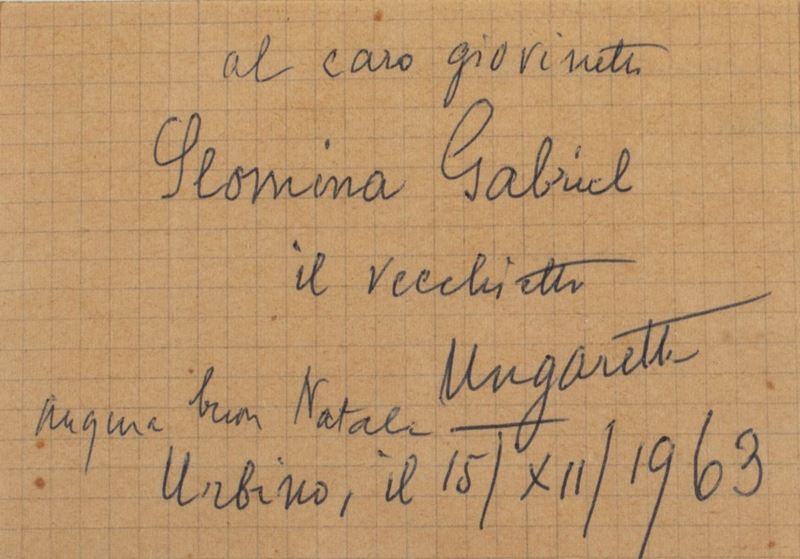 al caro giovinetto
Slomina Gabriel
il vecchietto
Ungaretti
augura buon Natale
Urbino, il 15/XII/1963